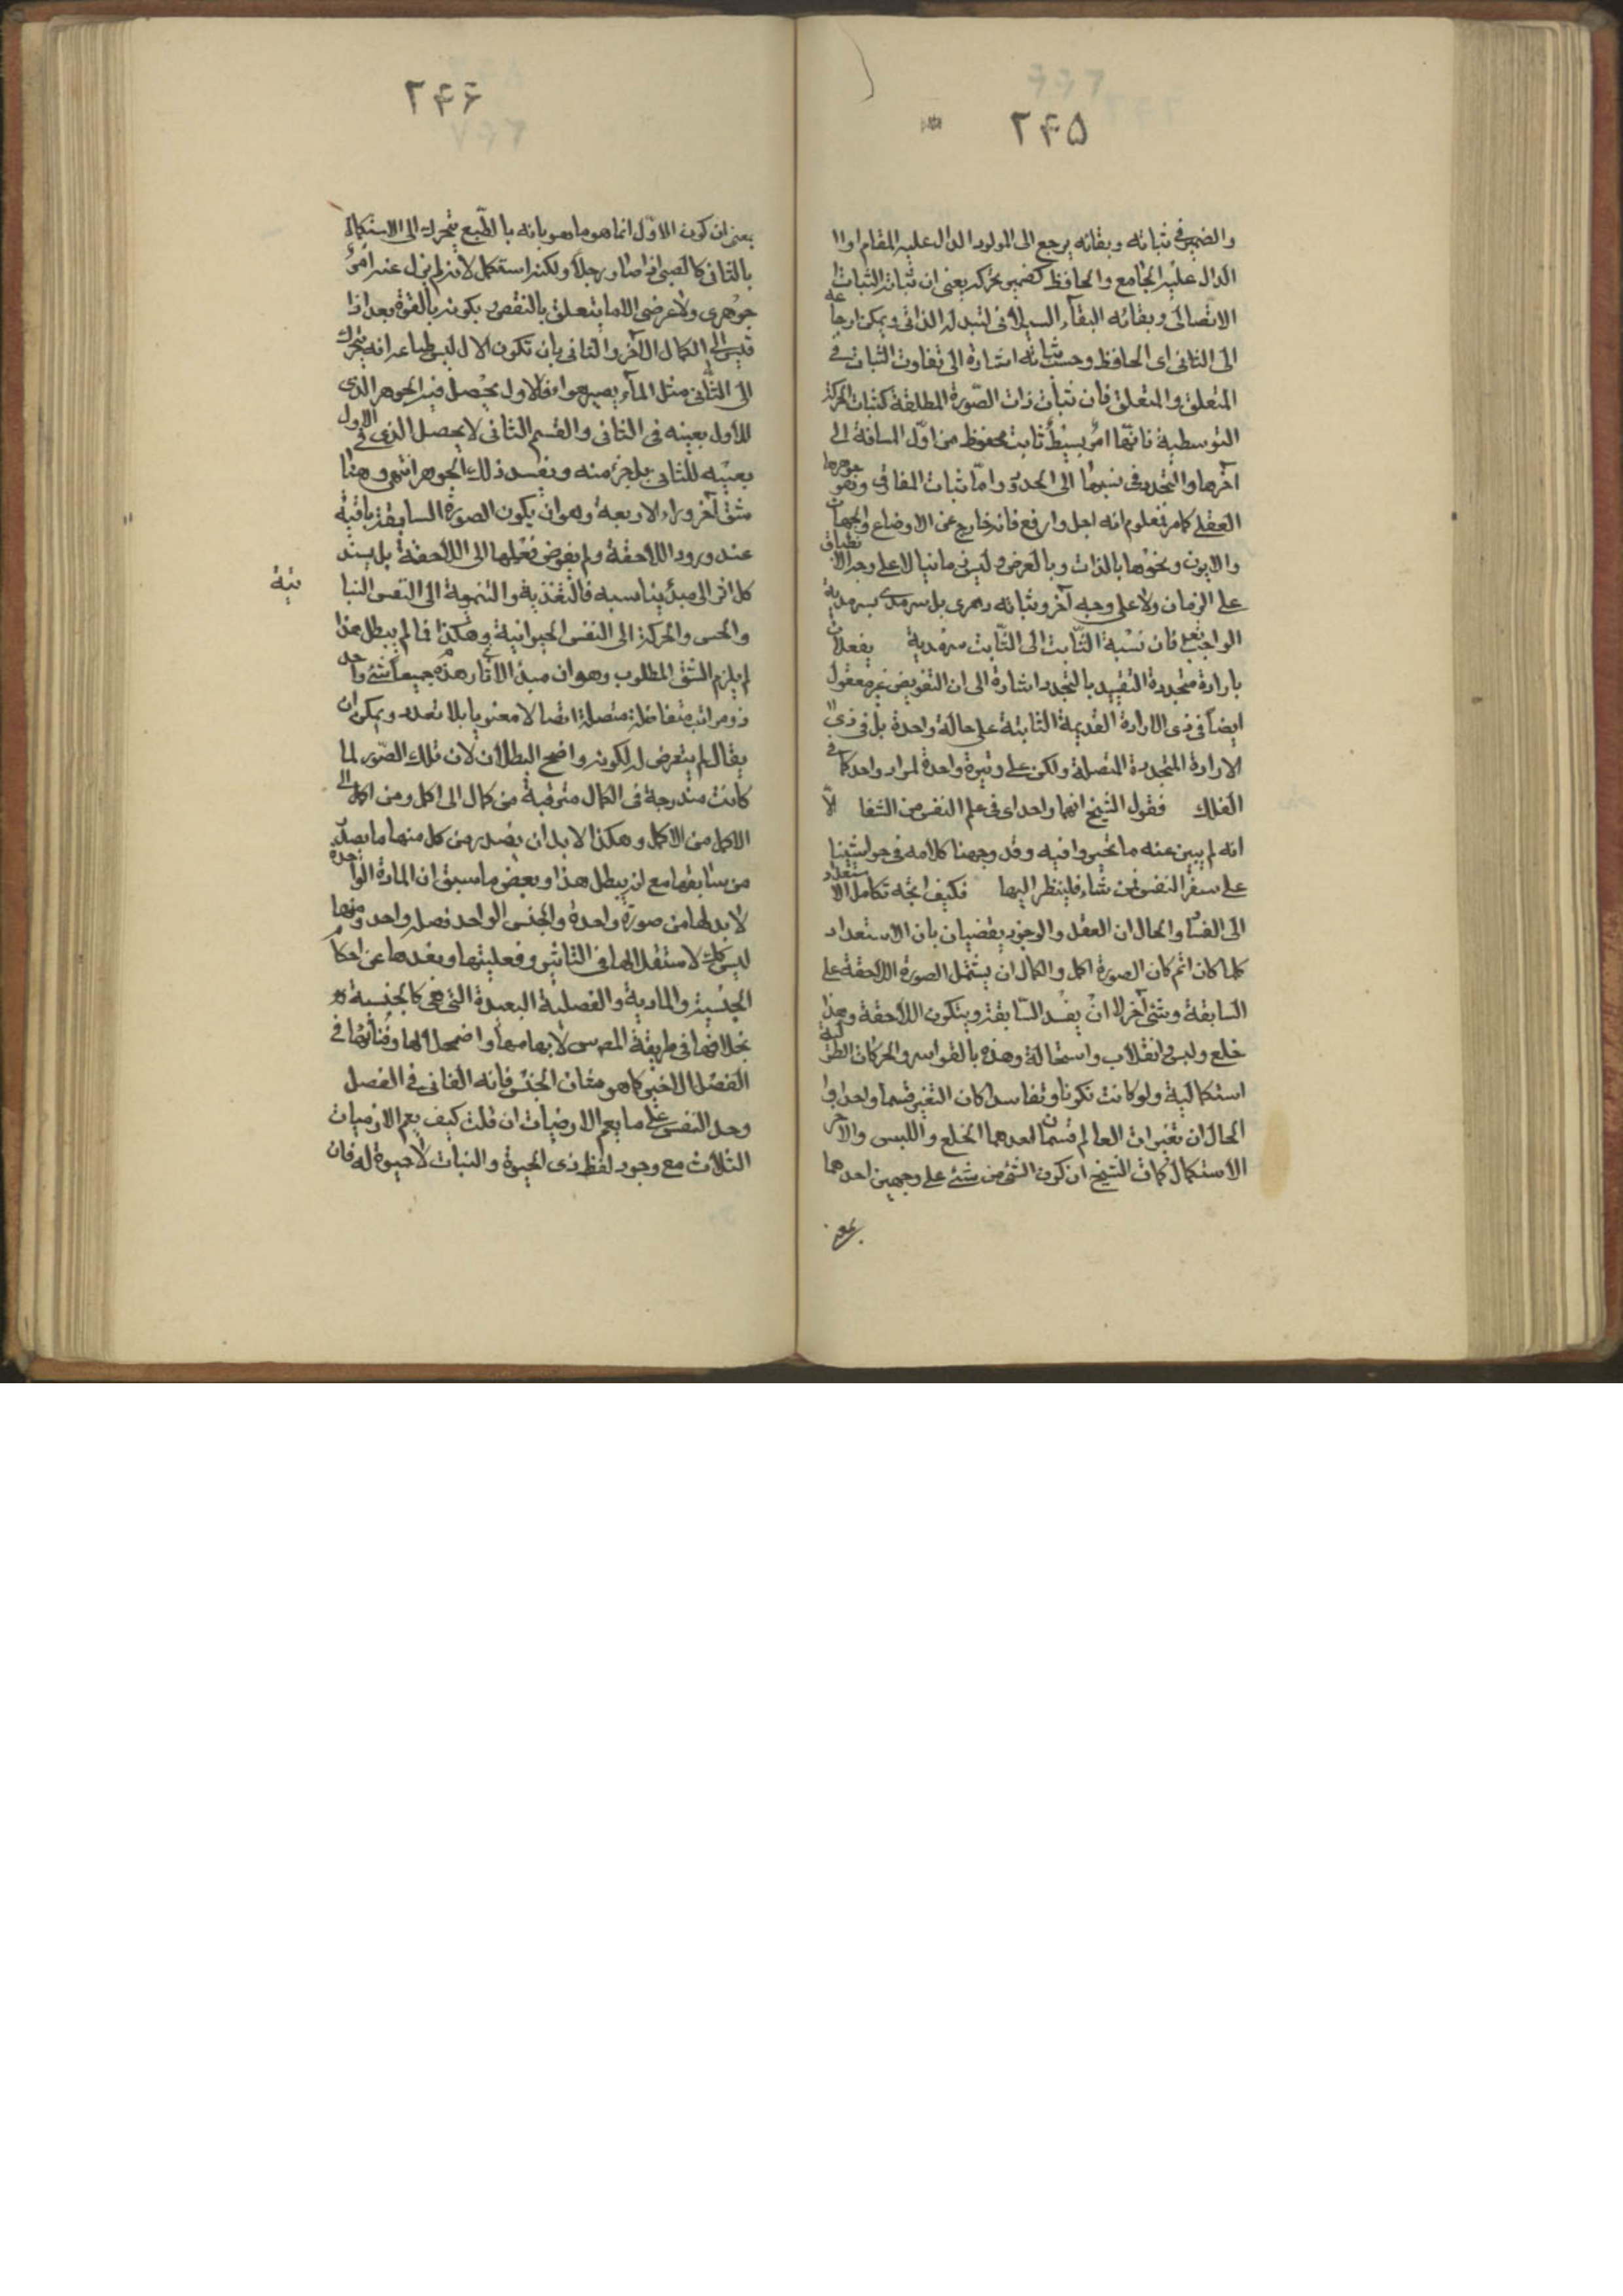 ۲۴۵
والضمير فی ثباته وبقائه يرجع الى المولود الدال عليه المقام اولا
الدال عليه الجامع والحافظ كضمير تحركه يعنى ان ثباته الثبات
الاتصالى وبقائه البقاء السيلانى لتبدله الذاتى ويمكن ارجاعه
الى الثانى اى الحافظ وحينئذ اشارة الى تفاوت الثبات فى
المتعلق والمتعلق فان ثبات ذات الصورة المطلقة كثبات الحركة
التوسطية فانها امر بسيط ثابت محفوظ من اول المسافة الى
آخرها والتجدد فى نسبها الى الحدود واما ثبات المفارق وهو جوهرها
العقلى كما مر فعلوم انه اجل وارفع فانه خارج عن الاوضاع والجهات
والايون ونحوها بالذات وبالعرض وليس زمانيا لا على وجه الانطباق
على الزمان ولا على وجه آخر وثباته دهرى بل سرمدى بسرمدية
الواجب تعالى فان نسبة الثابت الى الثابت سرمدية يفعلان
بارادة متجددة التقييد بالتجدد اشارة الى ان التفويض غير معقول
ايضا فى ذى الارادة القديمة الثابتة على حالة واحدة بل فى ذى
الارادة المتجددة المتصلة ولكن على وتيرة واحدة لمراد واحد كما فى
الفلك فقول الشيخ انهما واحد اى فى علم النفس من الشفا الا
انه لم يبين عنه ما تحيروا فيه وقد وجهنا كلامه فى حواشينا
على سفر النفس فمن شاء فلينظر اليها فكيف اتجه تكامل الاستعداد
الى الفساد والحال ان العقل والوجود يقضيان بان الاستعداد
كلما كان اتم كان الصورة اكمل والكمال ان يشتمل الصورة اللاحقة على
السابقة وشئ آخر لا ان يفسد السابقة ويتكون اللاحقة وهذا
خلع ولبس وانقلاب واستحالة وهذه بالقواسر والحركات الطولية
استكمالية ولو كانت تكونا وتفاسدا كان التغير قسما واحدا و
الحال ان تغيرات العالم قسمان احدهما الخلع واللبس والآخر
الاستكمال كما قال الشيخ ان كون الشئ من شئ على وجهين احدهما
بمعنى
۲۴۶
بمعنى ان كون الاول انما هو ما هو بانه بالطبع يتحرك الى الاستكمال
بالثانى كالصبى اذا صار رجلا ولكنه استكمل لانه لم يزل عنه امر
جوهرى ولا عرضى الا ما يتعلق بالنقص وبكونه بالقوة بعد اذا
قيس الى الكمال الآخر والثانى بان تكون الاول ليس طباعه انه يتحرك
الى الثانى مثل الماء يصير هواء فالاول يحصل فيه الجوهر الذى
للاول بعينه فى الثانى والقسم الثانى لا يحصل الذى فى الاول
بعينه للثانى بل جزء منه ويفسد ذلك الجوهر انتهى وهنا
شق آخر وراء الاربعة وهو ان يكون الصورة السابقة باقية
عند ورود اللاحقة ولم يفوض فعلها الى اللاحقة بل يسند
كل اثر الى مبدء يناسبه فالتغذية والتنمية الى النفس النباتية
والحس والحركة الى النفس الحيوانية وهكذا فما لم يبطل هذا
لم يلزم الشق المطلوب وهو ان مبدء الآثار هذه جميعا شئ واحد
ذو مراتب متفاضلة متصلة اتصالا معنويا بلا تعدد ويمكن ان
يقال لم يتعرض له لكونه واضح البطلان لان تلك الصور لما
كانت مندرجة فى الكمال مترقية من كمال الى اكمل ومن اكمل الى
الاكمل من الاكمل وهكذا لابد ان يصدر من كل منها ما يصدر
من سابقها مع انه يبطل هذا وبعض ما سبق ان المادة الواحدة
لابد لها من صورة واحدة والجنس الواحد فصله واحد ومنها
ليس كذلك لاستقلالها فى التاثير وفعليتها وبعدها عن احكام
الجنسية والمادية والفصلية البعيدة التى هى كالجنسية
بخلافها فى طريقة المص س لابهامها واضمحلالها وفنائها فى
الفصل الاخير كما هو مقام الجنس فانه الفانى فى الفصل
وحد النفس على ما يعم الارضيات ان قلت كيف يعم الارضيات
الثلاث مع وجود لفظ ذى الحيوة والنبات لا حيوة له فان